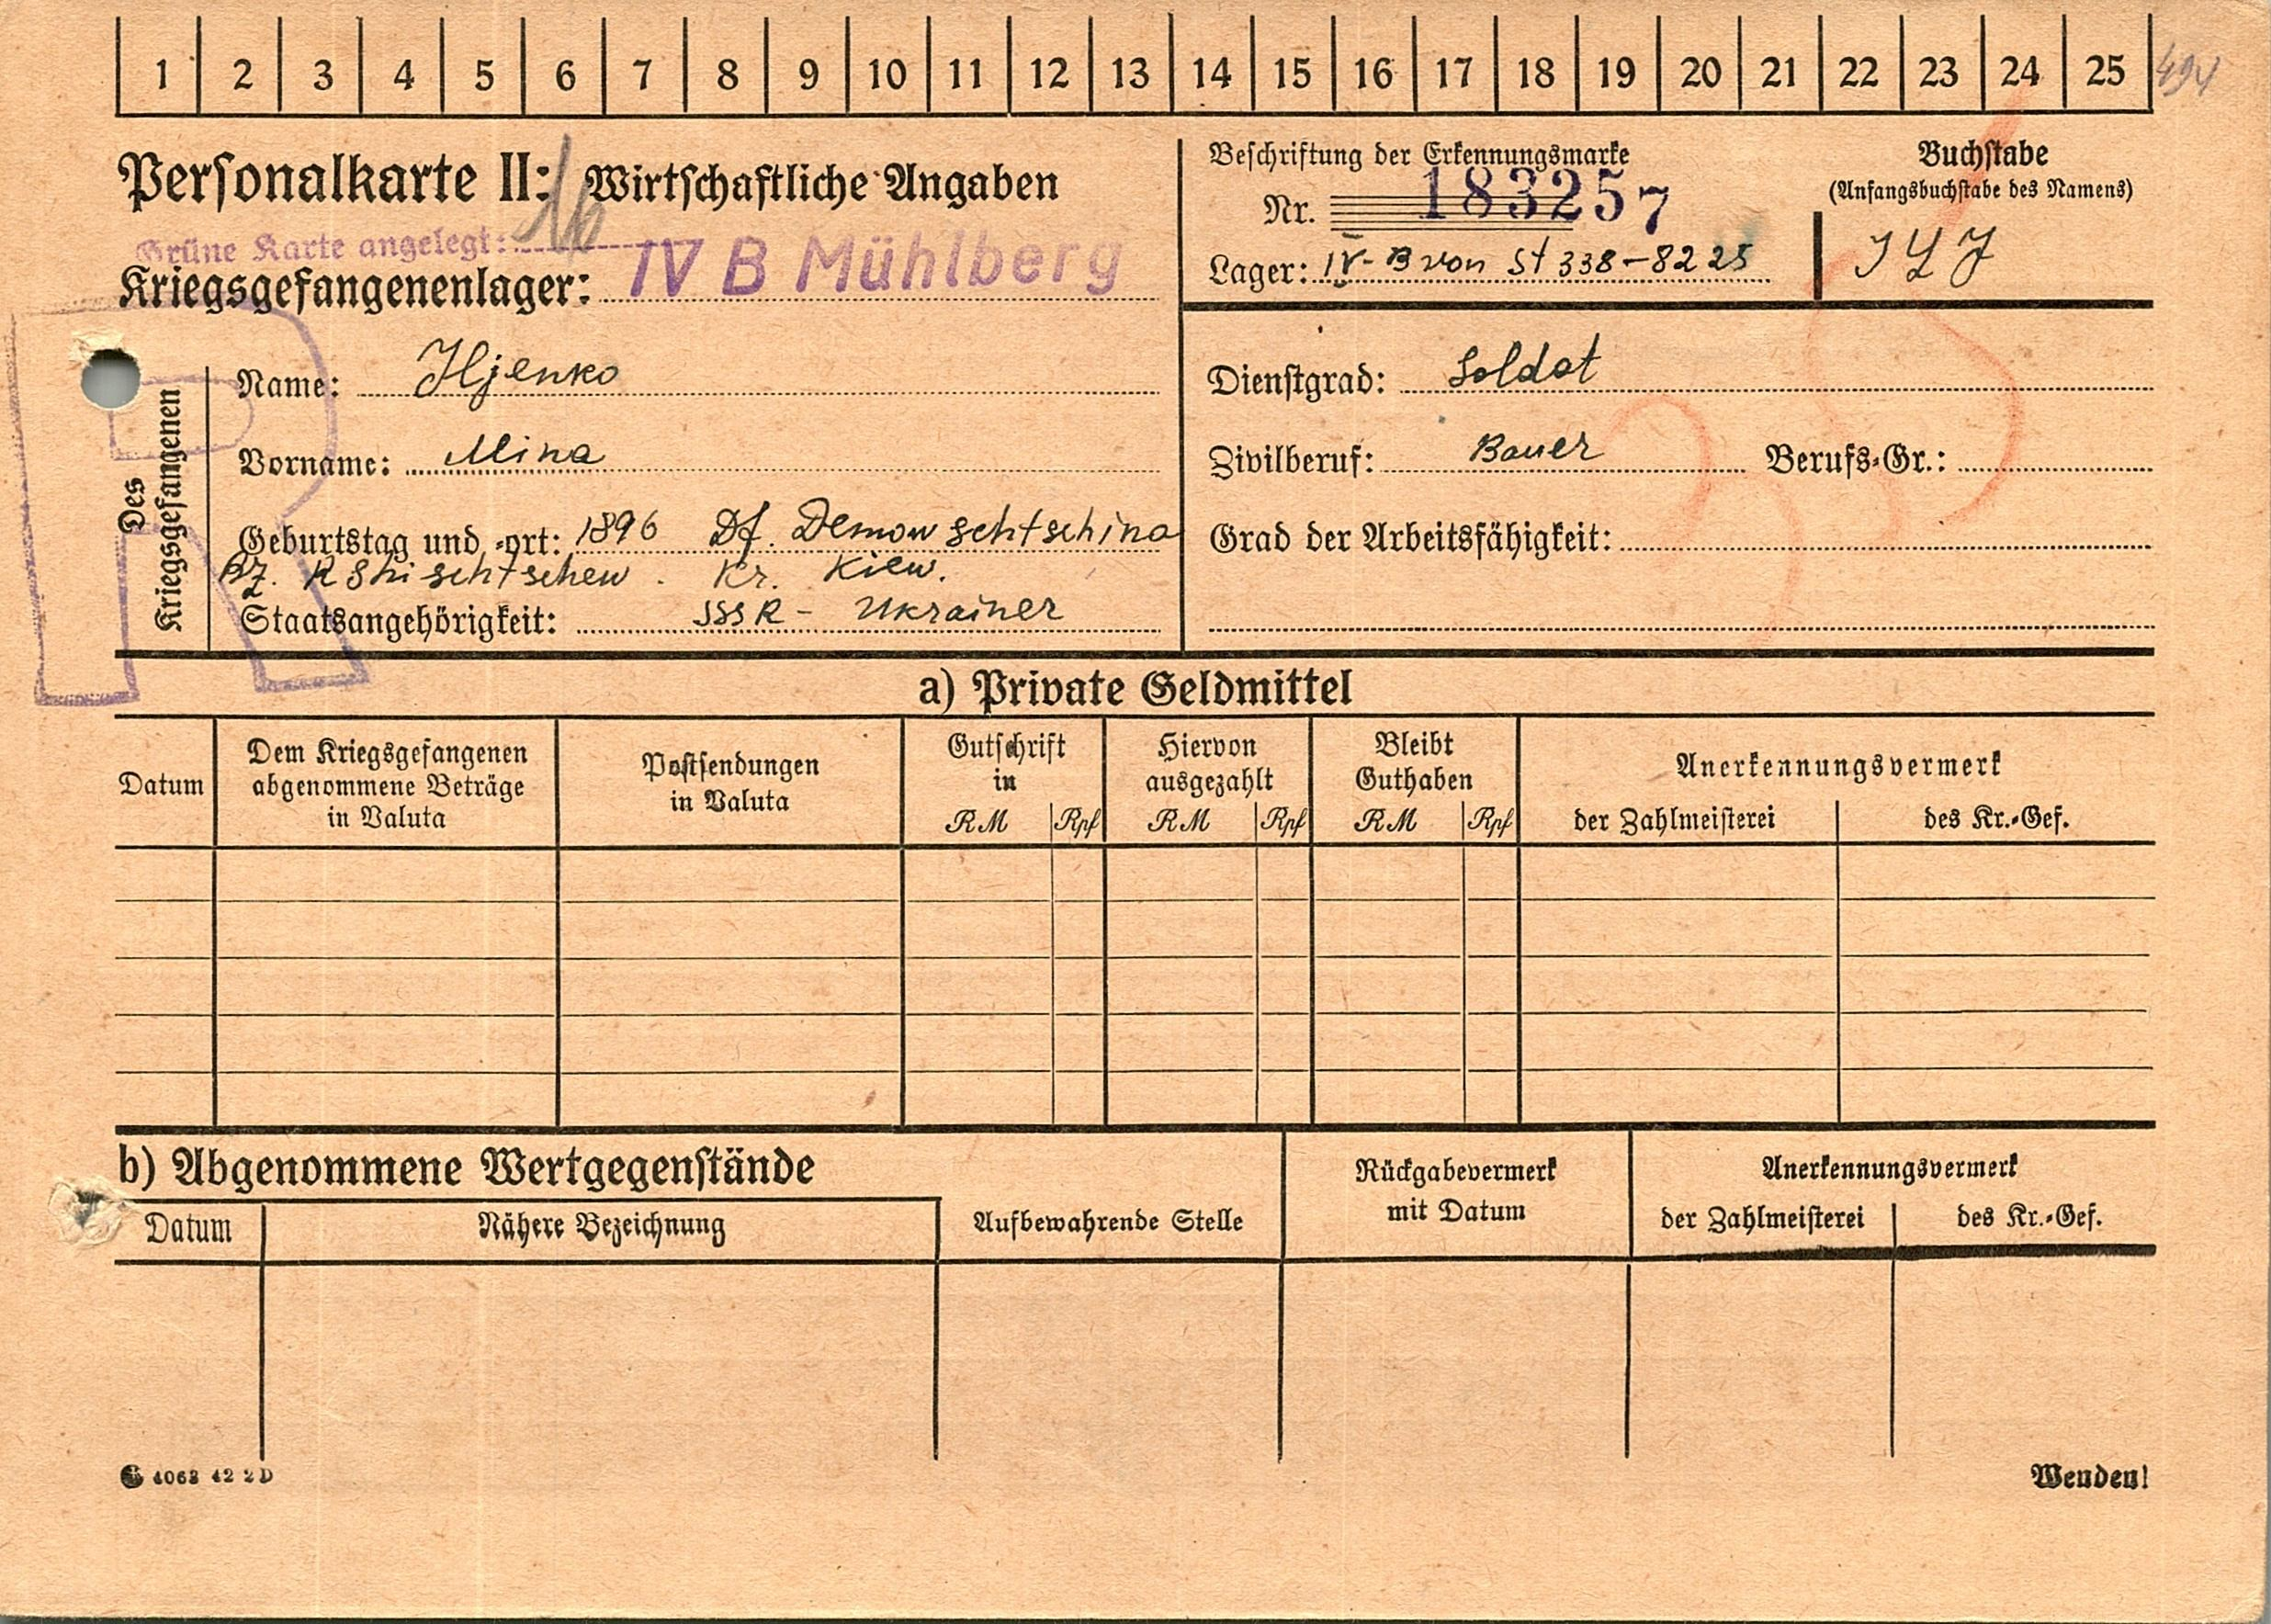 1 2 3 4 5 6 7 8 9 10 11 12 13 14 15 16 17 18 19 20 21 22 23 24 25
494
Personalkarte II: Wirtschaftliche Angaben
Grüne Karte angelegt:
Kriegsgefangenenlager: IV B Mühlberg
Beschriftung der Erkennungsmarke
Nr. 183257
Lager: IV-B von St 338-8225
Buchstabe
(Anfangsbuchstabe des Namens)
I L J
Des
Kriegsgefangenen
Name: Iljenko
Vorname: Mina
Geburtstag und -ort: 1896 Df. Demowschtschina
Bz. Rshischtschew. Kr. Kiew.
Staatsangehörigkeit: SSSR - Ukrainer
Dienstgrad: Soldat
Zivilberuf: Bauer Berufs-Gr.:
Grad der Arbeitsfähigkeit:
R
a) Private Geldmittel
Datum
Dem Kriegsgefangenen
abgenommene Beträge
in Valuta
Postsendungen
in Valuta
Gutschrift
in
RM Rpf
Hiervon
ausgezahlt
RM Rpf
Bleibt
Guthaben
RM Rpf
Anerkennungsvermerk
der Zahlmeisterei
des Kr.-Gef.
b) Abgenommene Wertgegenstände
Datum
Nähere Bezeichnung
Aufbewahrende Stelle
Rückgabevermerk
mit Datum
Anerkennungsvermerk
der Zahlmeisterei
des Kr.-Gef.
4063 42 2 D
Wenden!